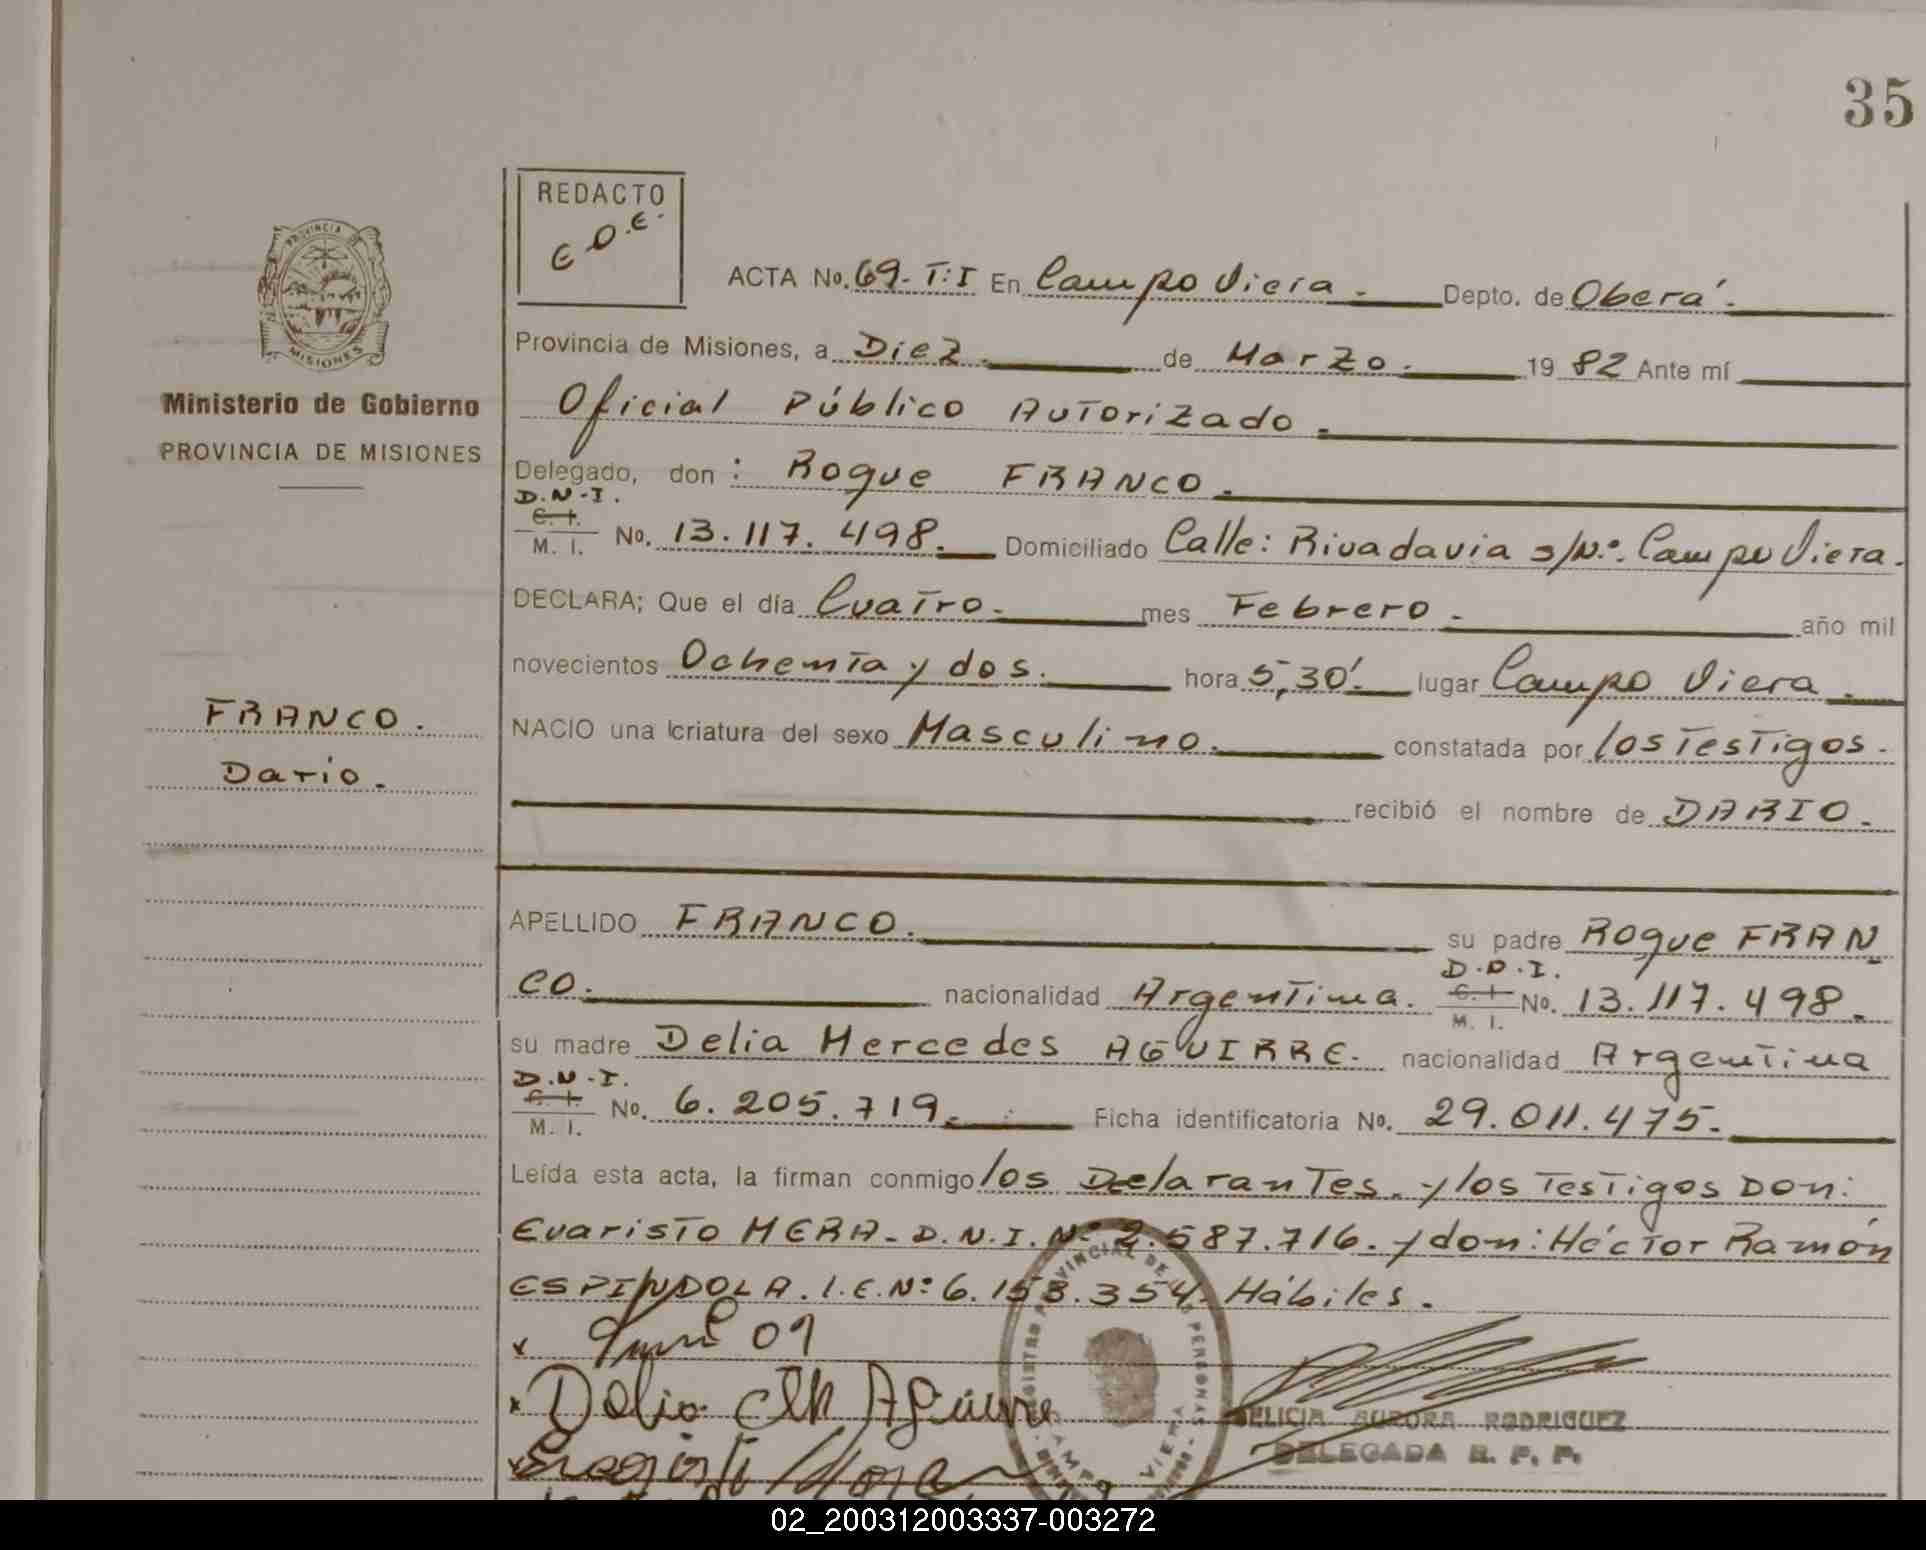 35
REDACTO
E.D.E.
PROVINCIA DE
MISIONES
Ministerio de Gobierno
PROVINCIA DE MISIONES
FRANCO.
Dario.
ACTA No. 69-T:I En Campo Viera. Depto. de Oberá.
Provincia de Misiones, a Diez. de Marzo. 19 82 Ante mí
Oficial Público Autorizado.
Delegado, don: Roque FRANCO.
D.N.I.
C. I.
M. I. No. 13.117.498. Domiciliado Calle: Rivadavia s/Nº. Campo Viera.
DECLARA; Que el día Cuatro. mes Febrero. año mil
novecientos Ochenta y dos. hora 5,30'. lugar Campo Viera.
NACIO una criatura del sexo Masculino. constatada por los Testigos.
recibió el nombre de DARIO.
APELLIDO FRANCO. su padre Roque FRAN
CO. nacionalidad Argentina. D.N.I. C. I. M. I. No. 13.117.498.
su madre Delia Mercedes AGUIRRE. nacionalidad Argentina
D.N.I.
C. I.
M. I. No. 6.205.719. Ficha identificatoria No. 29.011.475.
Leída esta acta, la firman conmigo los Delarantes. y los Testigos Don:
Evaristo MERA. D.N.I.Nº 2.587.716. y don: Héctor Ramón
ESPINDOLA. L.E.Nº 6.153.354. Hábiles.
Delia Aguirre
REGISTRO PROVINCIAL DE LAS PERSONAS
CAMPO VIERA
DELICIA AURORA RODRIGUEZ
DELEGADA R. P. P.
02_200312003337-003272